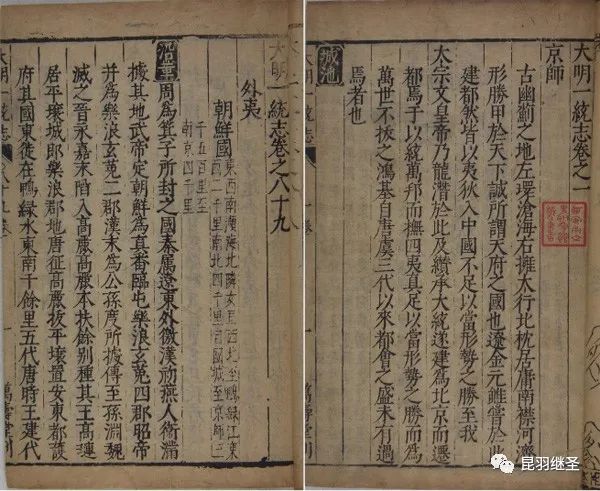 大明一統志卷之一
京師
古幽薊之地左環滄海右擁太行北枕居庸南襟河濟
形勝甲於天下誠所謂天府之國也遼金元雖嘗於此
建都然皆以夷狄入中國不足以當形勢之勝至我
太宗文皇帝乃龍潛於此及纘承大統遂建為北京而遷
都焉于以統萬邦而撫四夷真足以當形勢之勝而為
萬世不拔之鴻基自唐虞三代以來都會之盛未有過
焉者也
城池
大明一統志 卷一
大明一統志卷之八十九
外夷
朝鮮國 東西南濱海北隣女真西北至鴨綠江東
西二千里南北四千里自國城至京師三
千五百里至
京四千里
沿革 周為箕子所封之國秦屬遼東外徼漢初燕人衛滿
據其地武帝定朝鮮為真番臨屯樂浪玄菟四郡昭帝
并為樂浪玄菟二郡漢末為公孫度所據傳至孫淵魏
滅之晉永嘉末陷入高麗高麗本扶餘別種其王高璉
居平壤城即樂浪郡地唐征高麗拔平壤置安東都護
府其國東徙在鴨綠水東南千餘里五代唐時王建代
大明一統志 八十九卷 一 萬壽堂刊
昆羽继圣